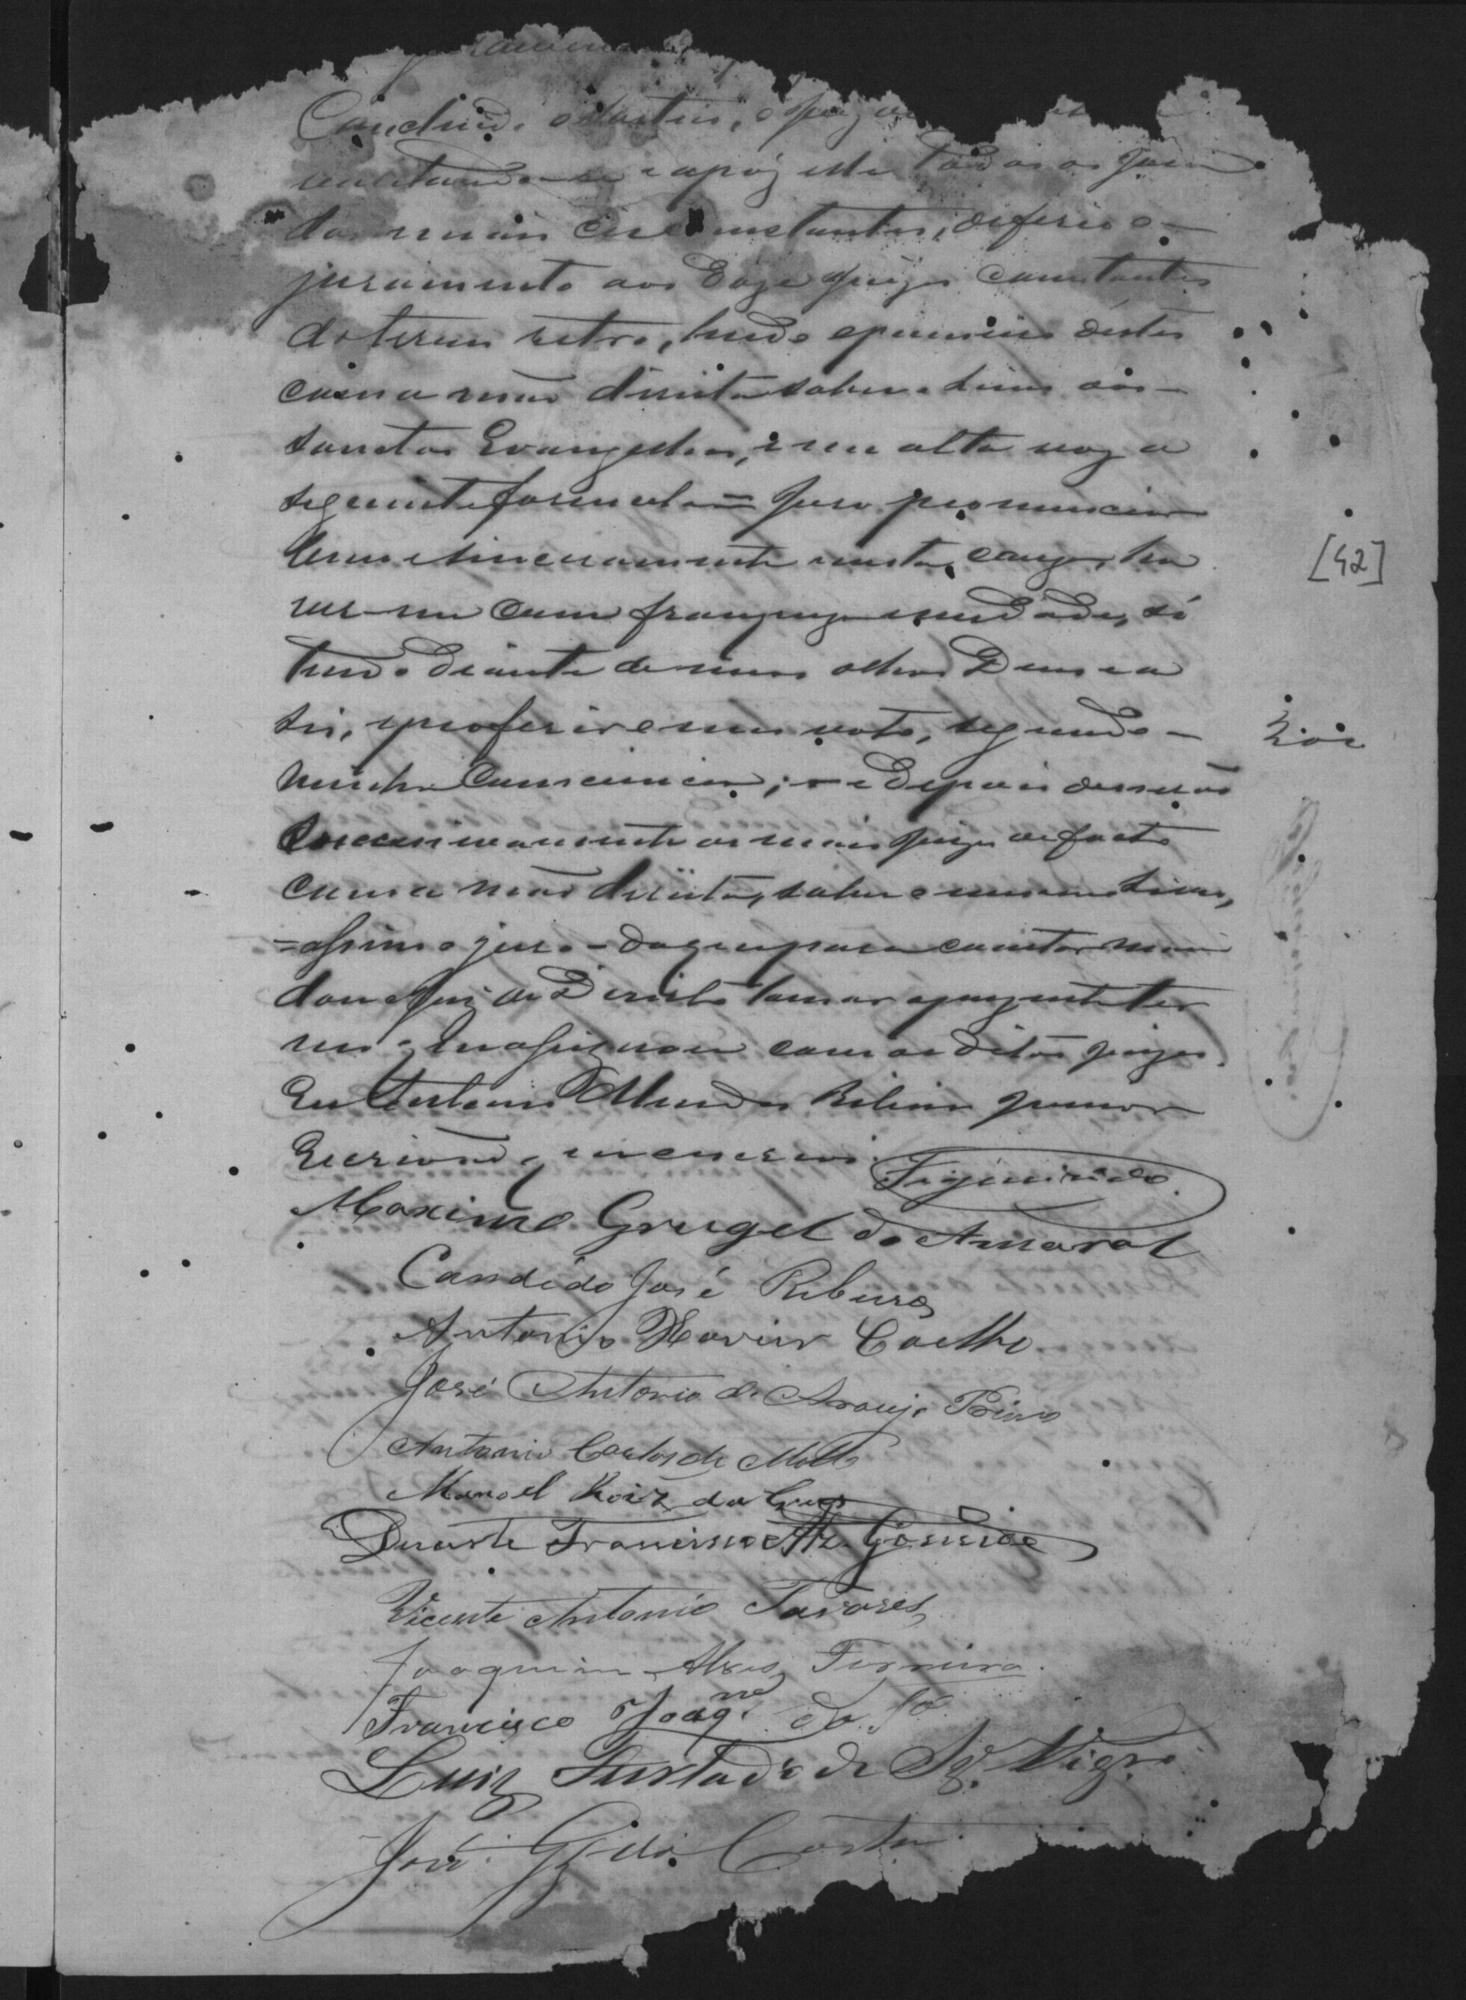 Concluido o sorteio, o Juiz
levantando-se e apóz elle todos os jura
dos e mais circumstantes, deferio o
juramento aos doze juizes constantes
do termo retro, lendo o primeiro destes
com a mão direita sobre o livro dos
Sanctos Evangelhos, e em alta voz a
seguinte formula = Juro pronunciar
bem e sinceramente nesta causa, ha
ver-me com franqueza e verdade, só
tendo diante de meus olhos Deus e a
lei, e proferir o meu voto, segundo
minha consciencia; = e depois disserão
successivamente os mais juizes de facto
com a mão direita, sobre o mesmo livro,
= assim o juro = do que para constar man
dou o Juiz de Direito lavrar o presente ter
mo, em que assignou com os ditos juizes.
Eu Antonio Mendes Ribeiro Junior
Escrivão, que escrevi.
Figueiredo
Maximo Grugel do Amaral
Candido José Ribeiro
Antonio Xavier Coelho
José Antonio de Araujo
Antonio Carlos de Mello
Manoel Roiz da Cruz
Duarte Francisco
Vicente Antonio Tavares
Joaquim Alves Ferreira
Francisco Joaq.m da S.a
Luiz Furtado de
José Costa
[42]